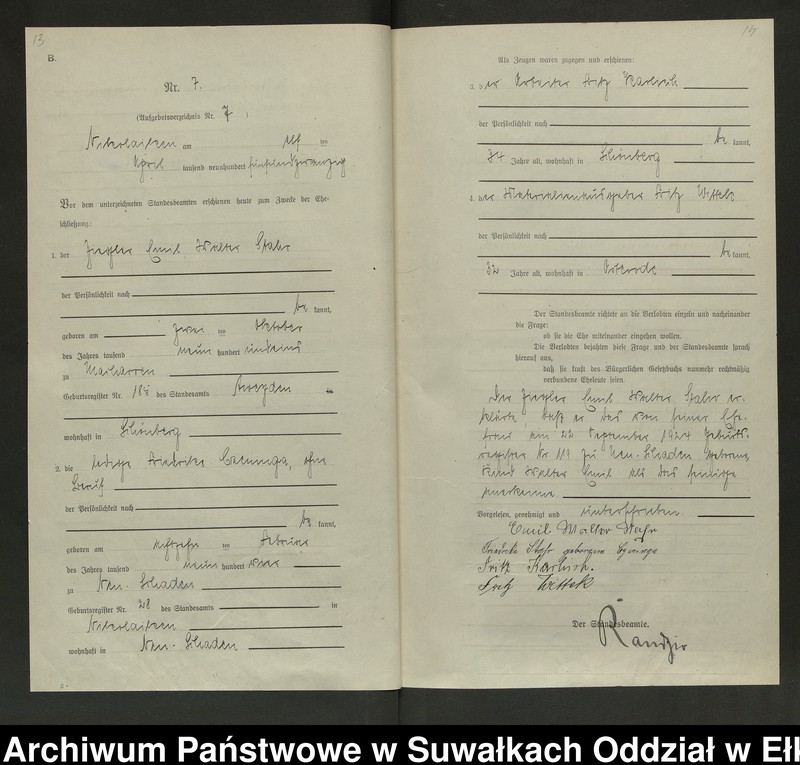 13
B.
Nr. 7.
(Aufgebotsverzeichnis Nr. 7)
Nikolaiken am elf ten
April tausend neunhundert fünfundzwanzig
Vor dem unterzeichneten Standesbeamten erschienen heute zum Zwecke der Ehe-
schließung:
1. der Ziegler Emil Walter Stahr
der Persönlichkeit nach
be kannt,
geboren am zwei ten Oktober
des Jahres tausend neun hundert
zu Macharren
Geburtsregister Nr. des Standesamts Awegden in
wohnhaft in Schönberg
2. die ledige Friederike Czeninga, ohne
Beruf
der Persönlichkeit nach
be kannt,
geboren am achtzehn ten Februar
des Jahres tausend neun hundert vier
zu Neu-Schaden
Geburtsregister Nr. 28 des Standesamts in
Nikolaiken
wohnhaft in Neu-Schaden
14
Als Zeugen waren zugegen und erschienen:
3. der Arbeiter Fritz Karlisch
der Persönlichkeit nach
be kannt,
34 Jahre alt, wohnhaft in Schönberg
4. der Materialienausgeber Fritz Wittek
der Persönlichkeit nach
be kannt,
32 Jahre alt, wohnhaft in Osterode
Der Standesbeamte richtete an die Verlobten einzeln und nacheinander
die Frage:
ob sie die Ehe miteinander eingehen wollen.
Die Verlobten bejahten diese Frage und der Standesbeamte sprach
hierauf aus,
daß sie kraft des Bürgerlichen Gesetzbuchs nunmehr rechtmäßig
verbundene Eheleute seien.
Der Ziegler Emil Walter Stahr er-
klärte, daß er das von seiner Ehe-
frau am 22 September 1924 Geburts-
register Nr. 119 zu Neu-Schaden geborene
Kind Walter Emil als das seinige
anerkenne.
Vorgelesen, genehmigt und unterschrieben.
Emil Walter Stahr
Friederike Stahr geborene
Fritz Karlisch.
Fritz Wittek
Der Standesbeamte.
Randzio
Archiwum Państwowe w Suwałkach Oddział w Ełk